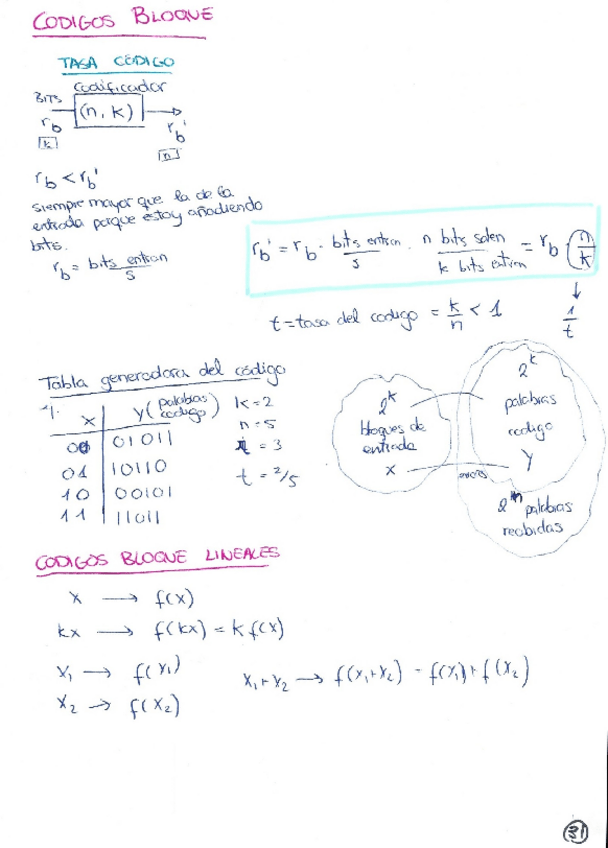 CODIGOS BLOQUE
TASA CÓDIGO
Codificador
BITS
(n, k)
r_b
r_b'
k
n
r_b < r_b'
siempre mayor que la de la
entrada porque estoy añadiendo
bits.
r_b = bits entran / s
r_b' = r_b · bits entran / s · n bits salen / k bits entran = r_b (n/k)
↓
1/t
t = tasa del codigo = k/n < 1
Tabla generadora del código
X | Y (palabras codigo)
00 | 01011
01 | 10110
10 | 00101
11 | 11011
k = 2
n = 5
= 3
t = 2/5
2^k
bloques de
entrada
X
2^k
palabras
codigo
Y
errores
2^n palabras
recibidas
CODIGOS BLOQUE LINEALES
X → f(X)
kX → f(kX) = k f(X)
X₁ → f(X₁)
X₂ → f(X₂)
X₁ + X₂ → f(X₁+X₂) = f(X₁) + f(X₂)
31